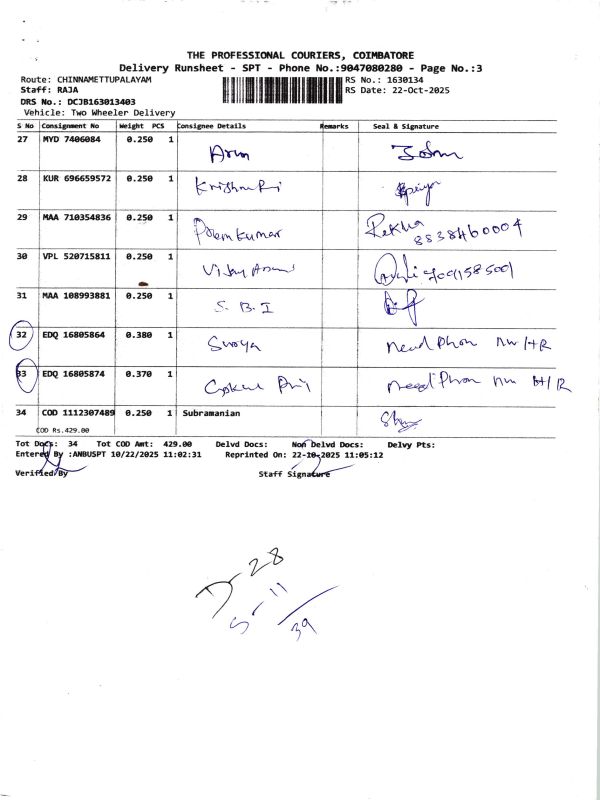 THE PROFESSIONAL COURIERS, COIMBATORE
Delivery Runsheet - SPT - Phone No.:9047080280 - Page No.:3
Route: CHINNAMETTUPALAYAM RS No.: 1630134
Staff: RAJA RS Date: 22-Oct-2025
DRS No.: DCJB163013403
Vehicle: Two Wheeler Delivery
S No Consignment No Weight PCS Consignee Details Remarks Seal & Signature
27 MYD 7406084 0.250 1 Arun
28 KUR 696659572 0.250 1
29 MAA 710354836 0.250 1 Prem Kumar Rekha
8838460004
30 VPL 520715811 0.250 1 Vijay
31 MAA 108993881 0.250 1 S.B.I
32 EDQ 16805864 0.380 1 Surya Need Phon
33 EDQ 16805874 0.370 1 Gokul Need Phon
34 COD 1112307489 0.250 1 Subramanian
COD Rs.429.00
Tot Docs: 34 Tot COD Amt: 429.00 Delvd Docs: Non Delvd Docs: Delvy Pts:
Entered By :ANBUSPT 10/22/2025 11:02:31 Reprinted On: 22-10-2025 11:05:12
Verified By Staff Signature
D- 28
S- 11
39